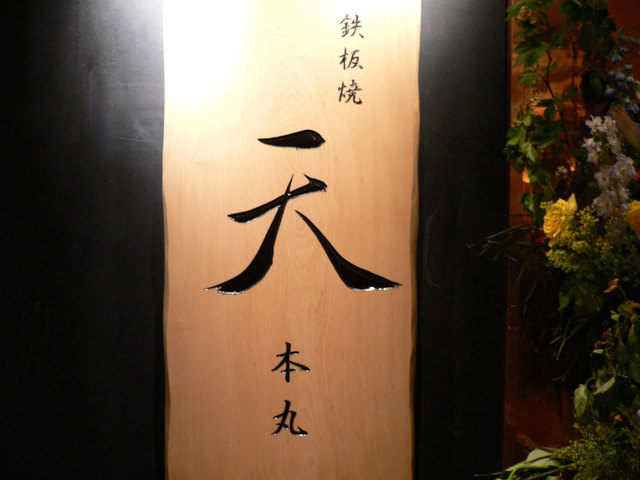 鉄板焼
天
本丸